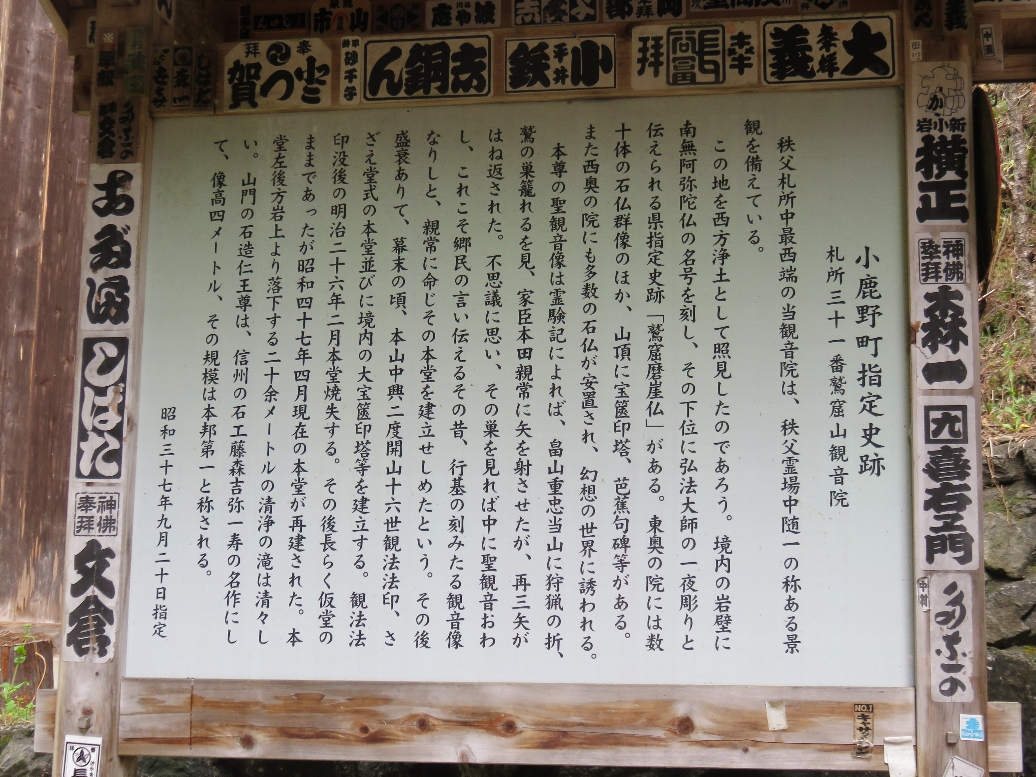 小鹿野町指定史跡
札所三十一番鷲窟山観音院
秩父札所中最西端の当観音院は、秩父霊場中随一の称ある景
観を備えている。
この地を西方浄土として照見したのであろう。境内の岩壁に
南無阿弥陀仏の名号を刻し、その下位に弘法大師の一夜彫りと
伝えられる県指定史跡「鷲窟磨崖仏」がある。東奥の院には数
十体の石仏群像のほか、山頂に宝篋印塔、芭蕉句碑等がある。
また西奥の院にも多数の石仏が安置され、幻想の世界に誘われる。
本尊の聖観音像は霊験記によれば、畠山重忠当山に狩猟の折、
鷲の巣籠れるを見、家臣本田親常に矢を射させたが、再三矢が
はね返された。不思議に思い、その巣を見れば中に聖観音おわ
し、これこそ郷民の言い伝えるその昔、行基の刻みたる観音像
なりしと、親常に命じその本堂を建立せしめたという。その後
盛衰ありて、幕末の頃、本山中興二度開山十六世観法法印、さ
ざえ堂式の本堂並びに境内の大宝篋印塔等を建立する。観法法
印没後の明治二十六年二月本堂焼失する。その後長らく仮堂の
ままであったが昭和四十七年四月現在の本堂が再建された。本
堂左後方岩上より落下する二十余メートルの清浄の滝は清々し
い。山門の石造仁王尊は、信州の石工藤森吉弥一寿の名作にし
て、像高四メートル、その規模は本邦第一と称される。
昭和三十七年九月二十日指定
大義
奉拝
小鉄
平井
志銅ん
奉拝
賀
新小岩
横正
神佛
参拝
森一
喜右エ門
しばた
神佛
奉拝
文倉
NO.1